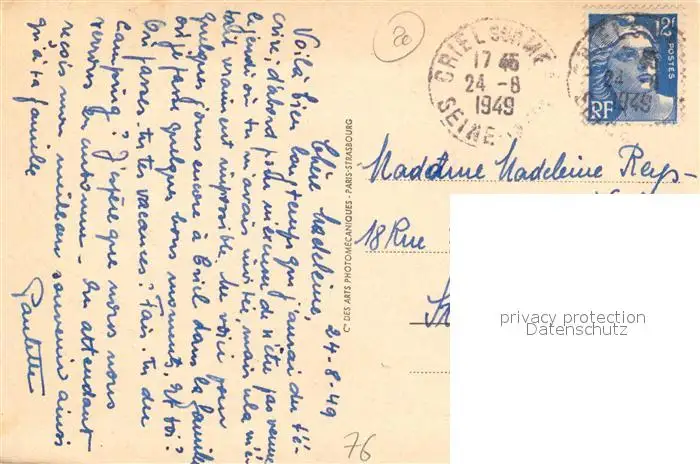 24-8-49
Chère Madeleine,
Voilà bien longtemps que j'aurai du t'é-
crire, d'abord pour m'excuser de n'être pas venue
le jeudi où tu m'avais invitée, mais cela m'é-
tait vraiment impossible. Me voici pour
quelques jours encore à Criel dans la famille
où je passe quelques bons moments, et toi?
Où passes-tu tes vacances? Fais-tu du
Camping? J'espère que nous nous
verrons en automne - En attendant
reçois mon meilleur souvenir ainsi
qu'à ta famille
Paulette
Cie DES ARTS PHOTOMÉCANIQUES - PARIS-STRASBOURG
20
CRIEL SUR MER
17 45
24 -8
1949
SEINE
12F
POSTES
RF
Madame Madeleine Reys-
18 Rue
76
privacy protection
Datenschutz